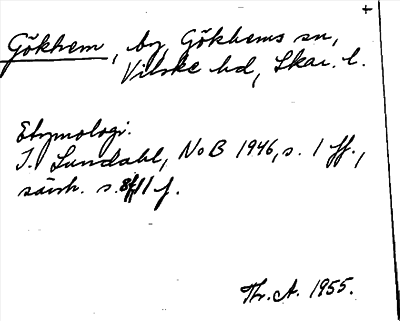 +
Gökhem, by, Gökhems sn,
Vilske hd, Skar. l.
Etymologi:
I. Lundahl, NoB 1946, s. 1 ff.,
särsk. s. 11 f.
Thr. A. 1955.